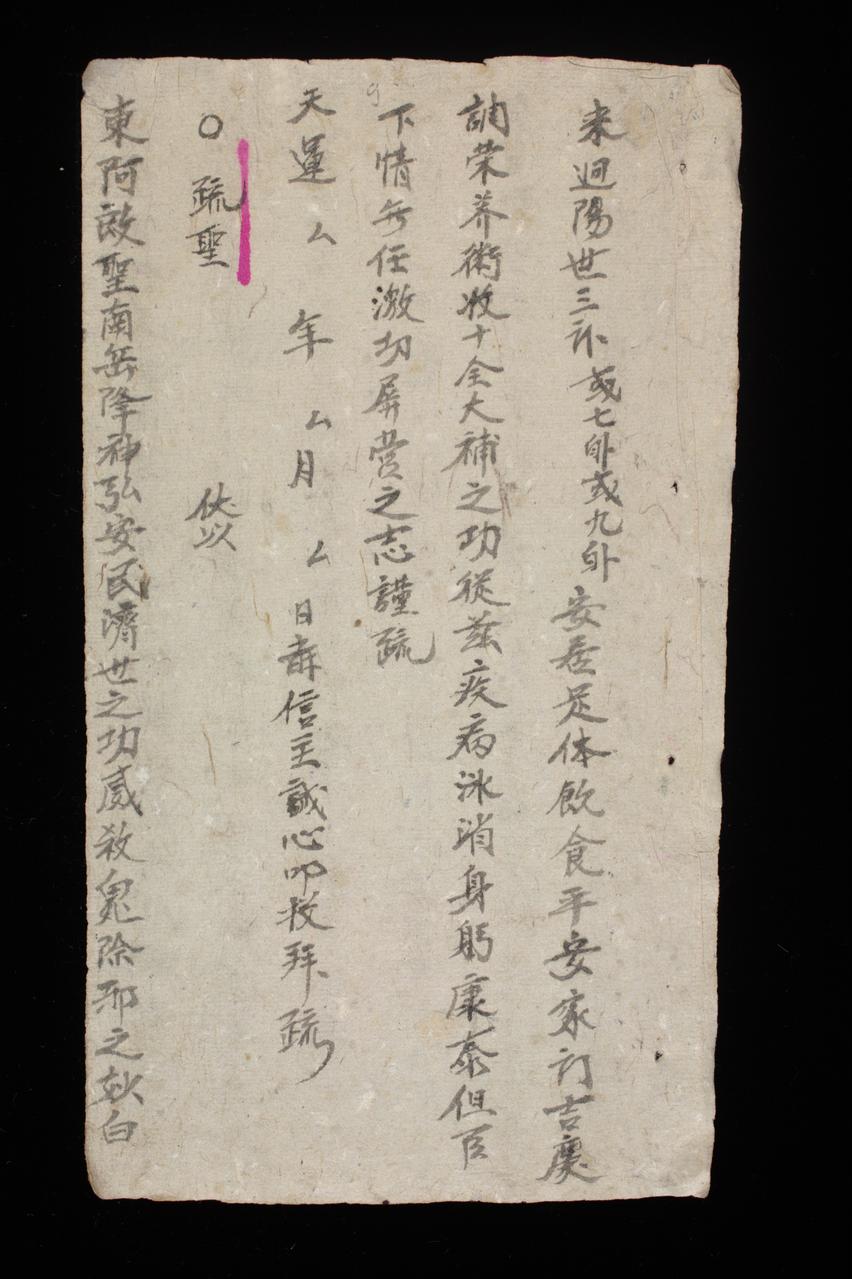 来迴陽世三卟或七卟或九卟安居足体飲食平安家訂吉慶
調荣养術收十全大補之功從茲疾病冰消身躬康泰但臣
下情無任激切屏营之志謹疏
天運厶年厶月厶日辜信主誠心叩救拜疏
○疏聖 伏以
東阿啟聖南岳降神弘安民濟世之功威殺鬼除邪之 白